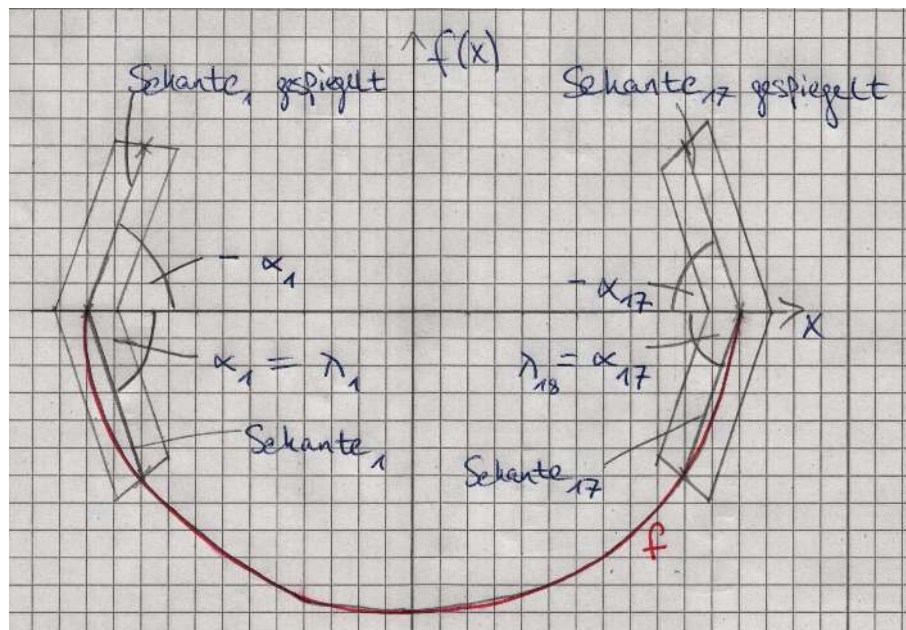 f(x)
Sekante₁ gespiegelt
Sekante₁₇ gespiegelt
- α₁
- α₁₇
x
α₁ = λ₁
λ₁₈ = α₁₇
Sekante₁
Sekante₁₇
f